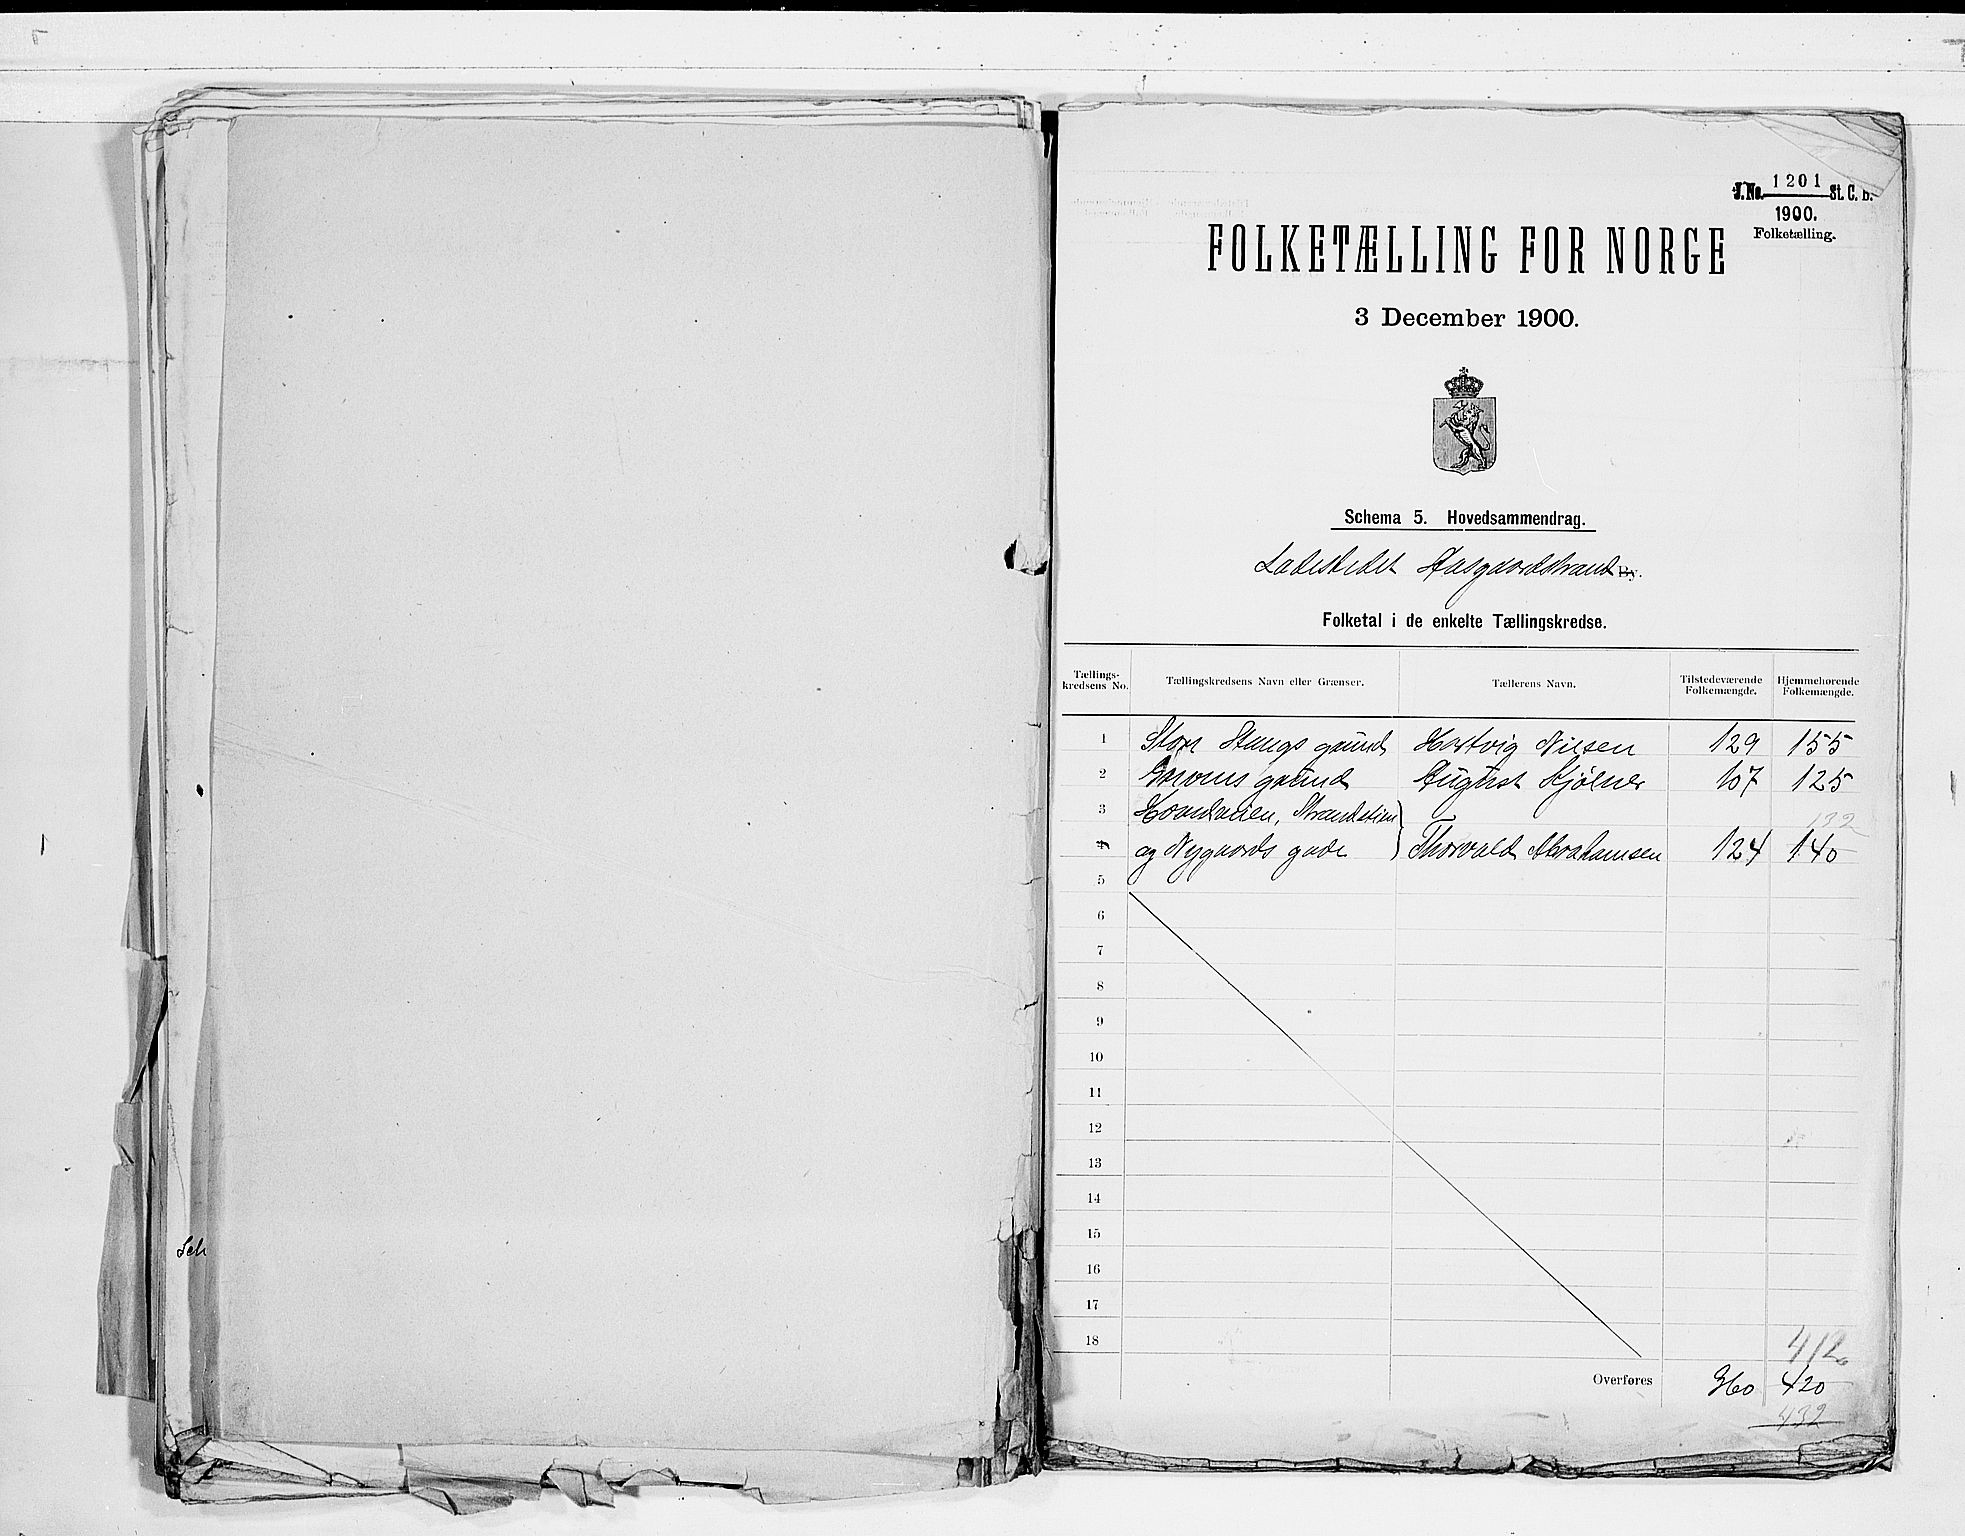 J. No. 1201 St. C. B.
1900.
Folketælling.
FOLKETÆLLING FOR NORGE
3 December 1900.
Schema 5. Hovedsammendrag.
Ladestedet Aasgaardstrand By.
Folketal i de enkelte Tællingskredse.
Tællings-kredsens No. Tællingskredsens Navn eller Grænser. Tællerens Navn. Tilstedeværende Folkemængde. Hjemmehørende Folkemængde.
1 Stangs grund Hartvig Nilsen 129 155
2 grund August Kjølner 107 125
3
132
4 og Nygaards gade Thorvald Abrahamsen 124 140
5
6
7
8
9
10
11
12
13
14
15
16
17
18
412
Overføres 360 420
432
Sch